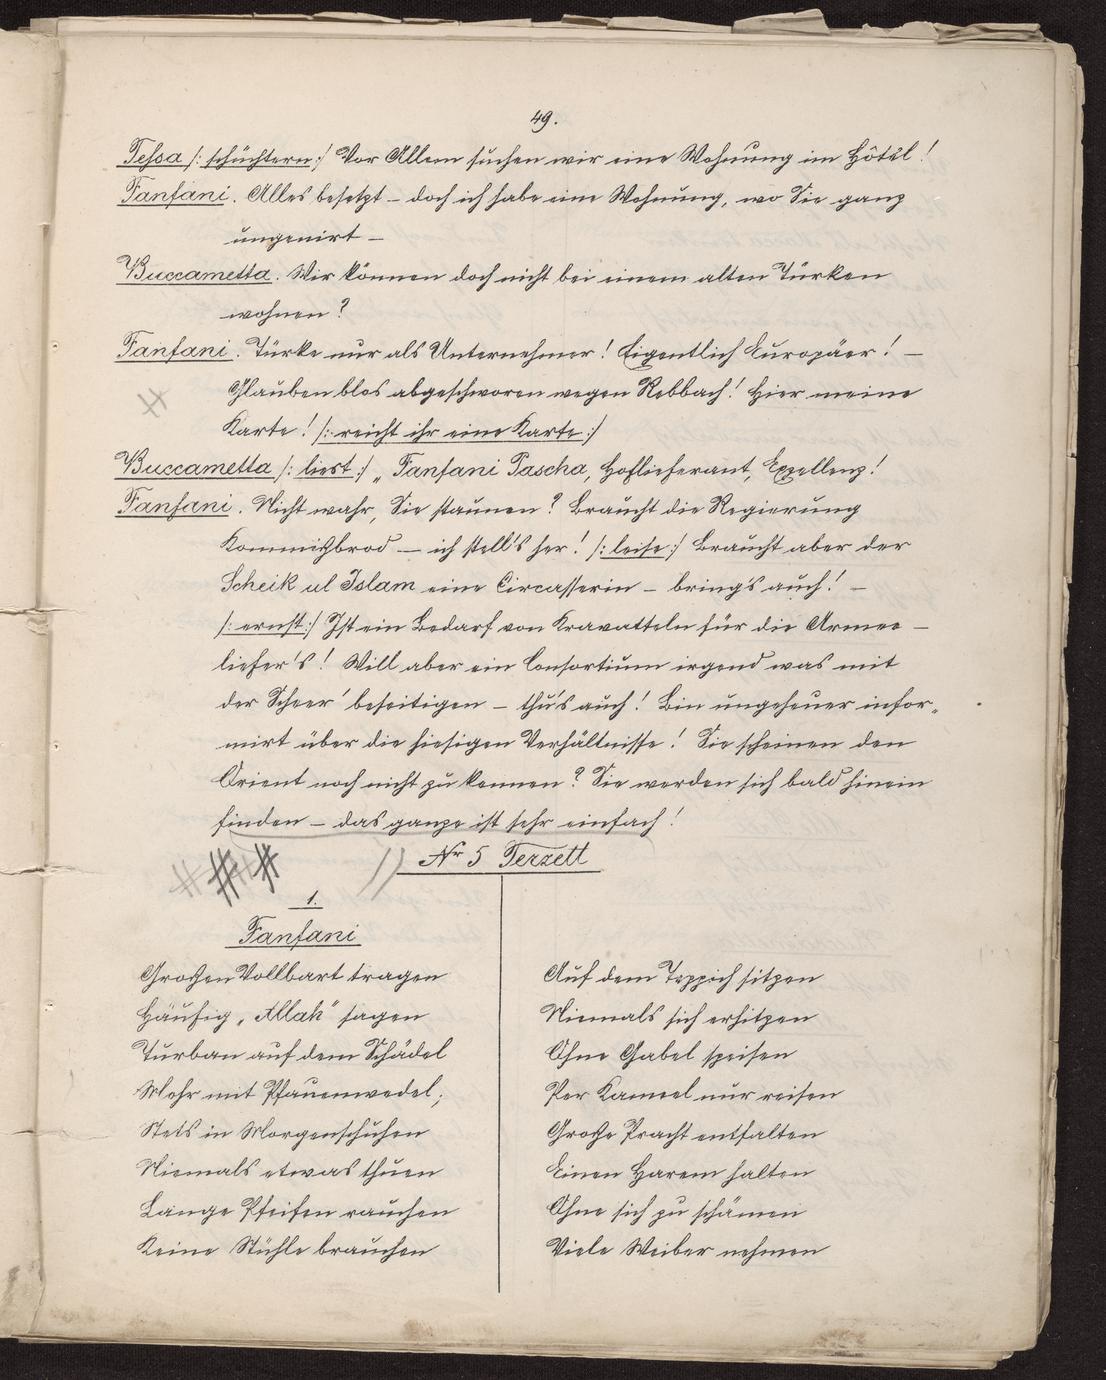 49.
Tessa /: schüchtern :/ Vor Allem suchen wir eine Wohnung im Hôtel!
Fanfani. Alles besetzt – doch ich habe eine Wohnung, wo Sie ganz
ungenirt –
Buccametta. Wir können doch nicht bei einem alten Türken
wohnen?
Fanfani. Türke nur als Unternehmer! Eigentlich Europäer! –
Glauben blos abgeschworen wegen Rebbach! Hier meine
Karte! /: reicht ihr eine Karte :/
Buccametta /: liest :/ „Fanfani Pascha, Hoflieferant, Exzellenz!
Fanfani. Nicht wahr, Sie staunen? Braucht die Regierung
Kommißbrod – ich stell's her! /: leise :/ Braucht aber der
Scheik ul Islam eine Circasserin – bring's auch! –
/: ernst :/ Ist ein Bedarf von Kravatteln für die Armee –
liefer's! Will aber ein Consortium irgend was mit
der Scheer' beseitigen – thu's auch! Bin ungeheuer infor-
mirt über die hiesigen Verhältnisse! Sie scheinen den
Orient noch nicht zu kennen? Sie werden sich bald hinein
finden – das ganze ist sehr einfach!
Nr 5 Terzett
1.
Fanfani
Großen Vollbart tragen
Häufig „Allah" sagen
Turban auf dem Schädel
Mohr mit Pfauenwedel;
Stets in Morgenschuhen
Niemals etwas thuen
Lange Pfeifen rauchen
Keine Stühle brauchen
Auf dem Teppich sitzen
Niemals sich erhitzen
Ohne Gabel speisen
Per Kameel nur reisen
Große Pracht entfalten
Einen Harem halten
Ohne sich zu schämen
Viele Weiber nehmen